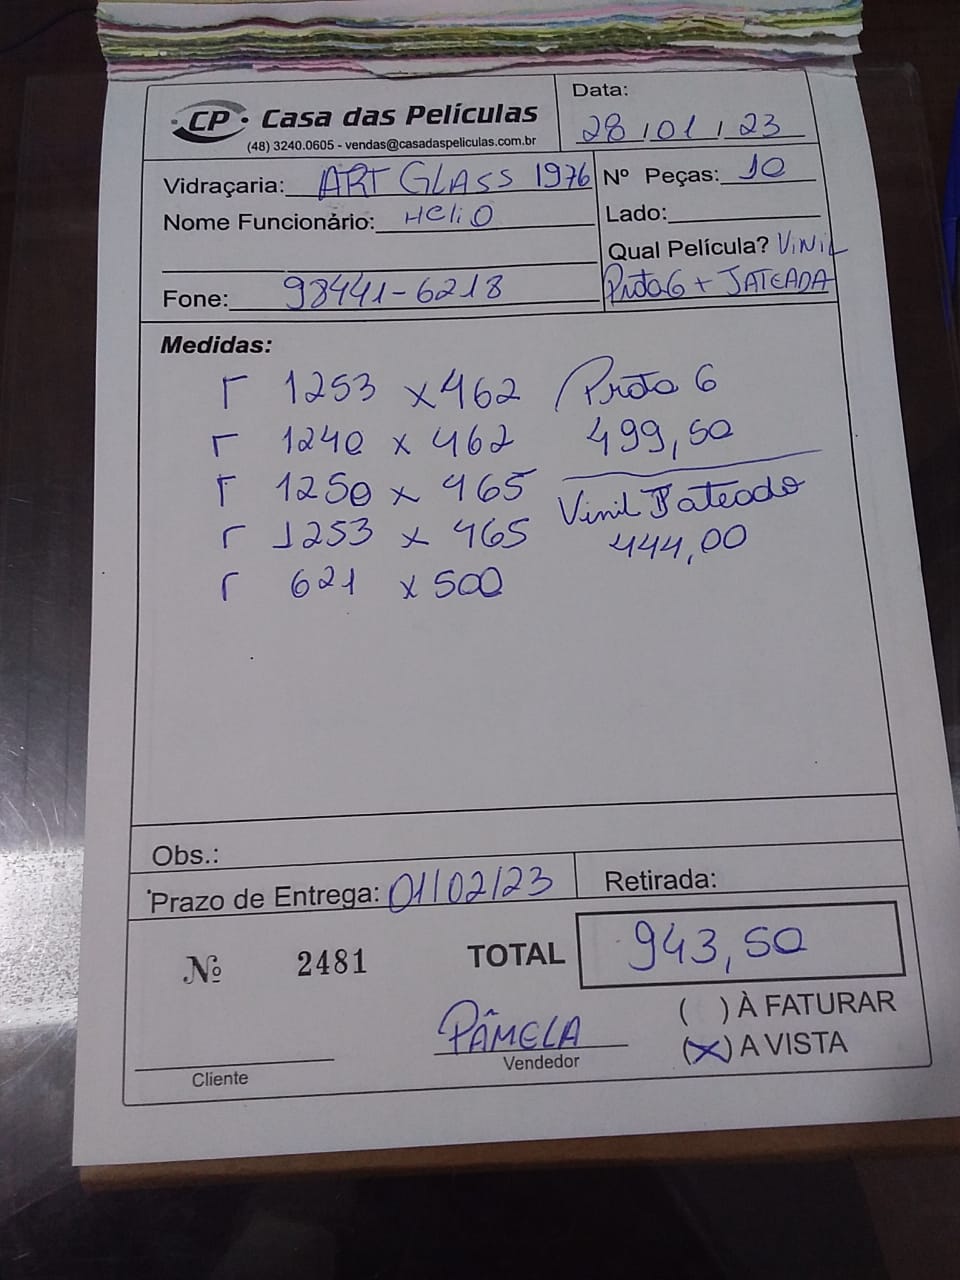 CP Casa das Películas
(48) 3240.0605 - vendas@casadaspeliculas.com.br
Data:
28/01/23
Vidraçaria: ART GLASS 1976
Nº Peças: 10
Nome Funcionário: HELIO
Lado:
Qual Película? VINIL
Preto G + JATEADA
Fone: 98441-6218
Medidas:
Γ 1253 x 462 Preto G
Γ 1240 x 462 499,50
Γ 1250 x 465 Vinil Jateado
Γ 1253 x 465 444,00
Γ 621 x 500
Obs.:
Prazo de Entrega: 01/02/23 Retirada:
Nº 2481 TOTAL 943,50
( ) À FATURAR
PÂMELA (X) A VISTA
Cliente Vendedor